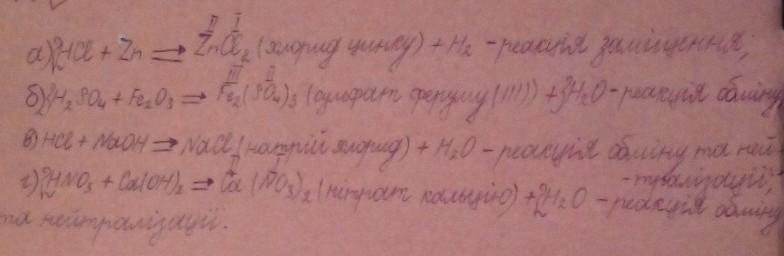 а) 2HCl + Zn ⇒ ZnCl₂ (хлорид цинку) + H₂ - реакція заміщення;
б) 3H₂SO₄ + Fe₂O₃ → Fe₂(SO₄)₃ (сульфат феруму (III)) + 3H₂O - реакція обміну
в) HCl + NaOH ⇒ NaCl (натрій хлорид) + H₂O - реакція обміну та ней-
г) 2HNO₃ + Ca(OH)₂ ⇒ Ca(NO₃)₂ (нітрат кальцію) + 2H₂O - реакція обміну
-тралізації;
та нейтралізації.